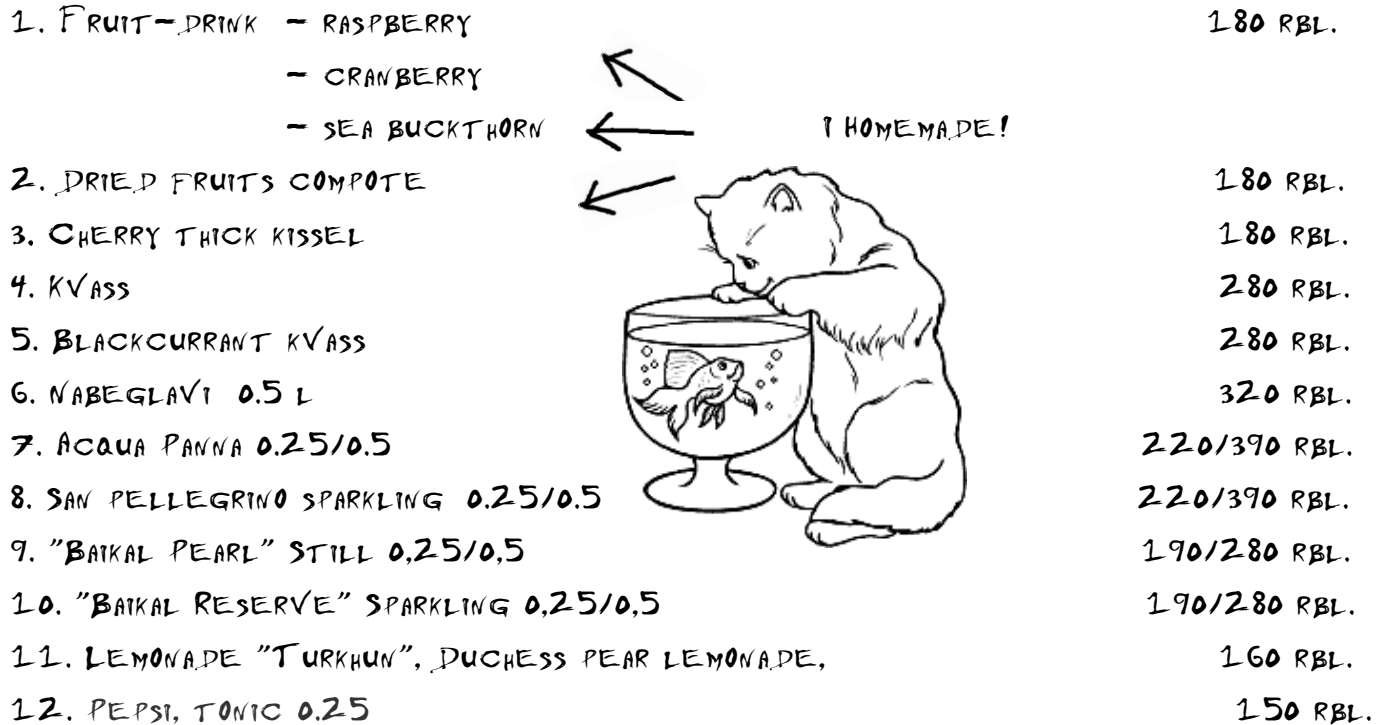 1. Fruit-drink - raspberry 180 rbl.
- cranberry
- sea buckthorn ! homemade!
2. Dried fruits compote 180 rbl.
3. Cherry thick kissel 180 rbl.
4. Kvass 280 rbl.
5. Blackcurrant kvass 280 rbl.
6. Nabeglavi 0.5 l 320 rbl.
7. Acqua Panna 0.25/0.5 220/390 rbl.
8. San pellegrino sparkling 0.25/0.5 220/390 rbl.
9. "Baikal Pearl" Still 0,25/0,5 190/280 rbl.
10. "Baikal Reserve" Sparkling 0,25/0,5 190/280 rbl.
11. Lemonade "Turkhun", Duchess pear lemonade, 160 rbl.
12. Pepsi, tonic 0.25 150 rbl.